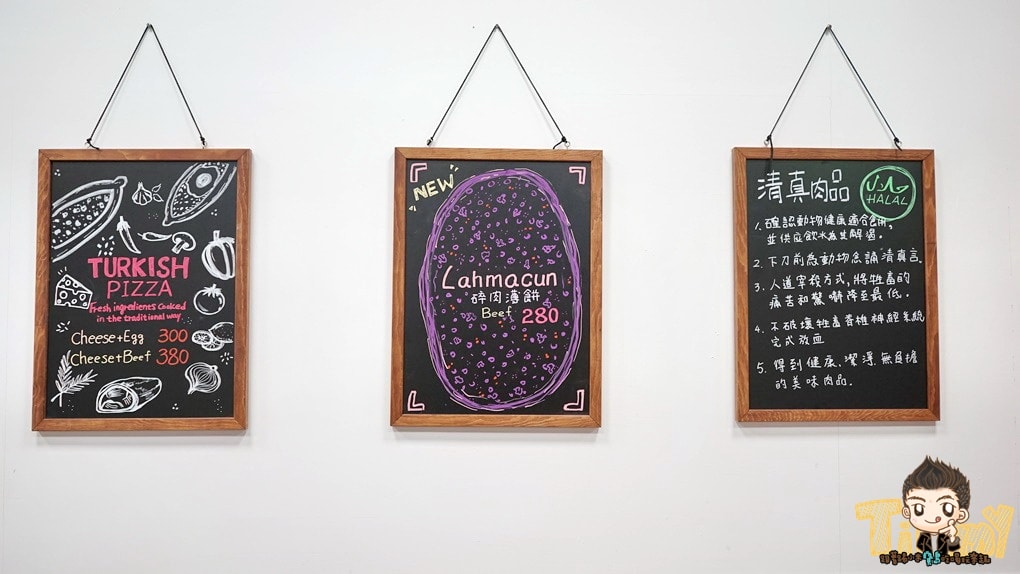 TURKISH
PIZZA
Fresh ingredients Cooked
in the traditional way
Cheese+Egg 300
Cheese+Beef 380
NEW
Lahmacun
碎肉薄餅
Beef 280
清真肉品
HALAL
1. 確認動物健康適合食用,
並供應飲水為其解渴。
2. 下刀前為動物念誦清真言.
3. 人道宰殺方式,將牲畜的
痛苦和驚嚇降至最低。
4. 不破壞牲畜脊椎神經系統
完成放血
5. 得到健康.潔淨.無負擔
的美味肉品.